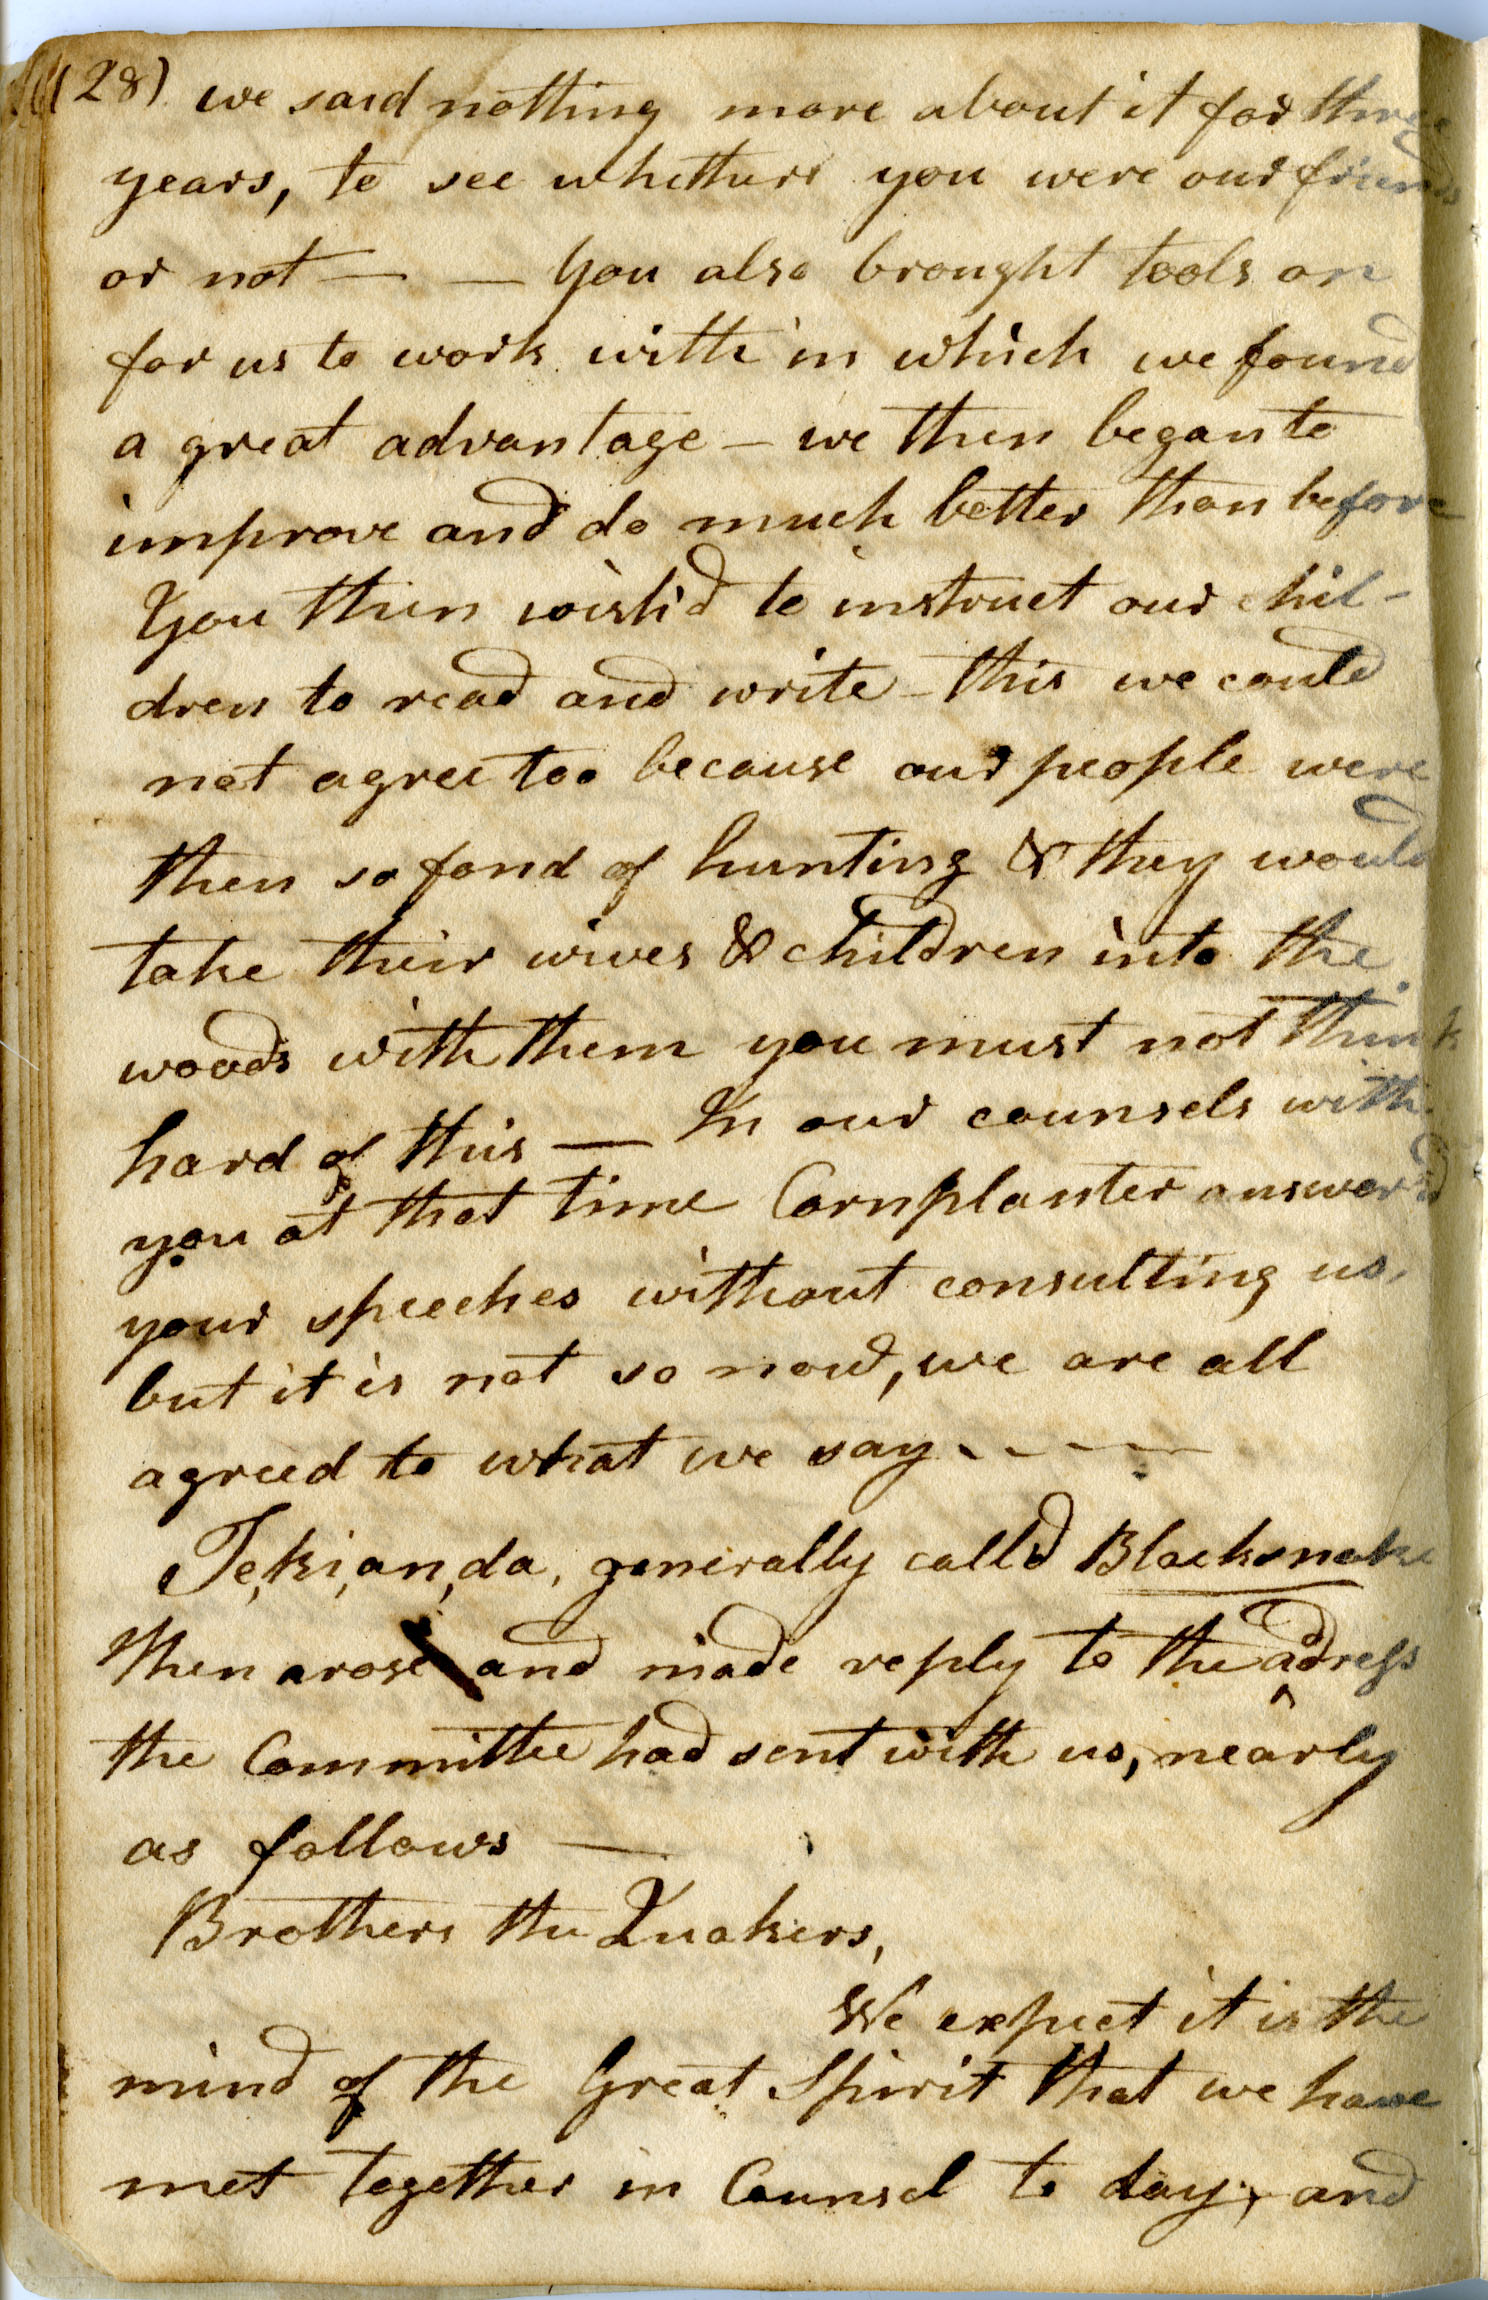 (28) we said nothing more about it for three
years, to see whether you were our friends
or not — — You also brought tools on
for us to work with in which we found
a great advantage – we then began to
improve and do much better than before
You then wish'd to instruct our chil-
dren to read and write – this we could
not agree too because our people were
then so fond of hunting & they would
take their wives & children into the
woods with them you must not think
hard of this — In our counsels with
you at that time Cornplanter answer'd
your speeches without consulting us,
but it is not so now, we are all
agreed to what we say - - - -
Te,ki,an,da, generally call'd Blacksnake
then arose and made reply to the adress
the Committee had sent with us, nearly
as follows —
Brothers the Quakers,
We expect it is the
mind of the Great Spirit that we have
met together in Counsel to day, and